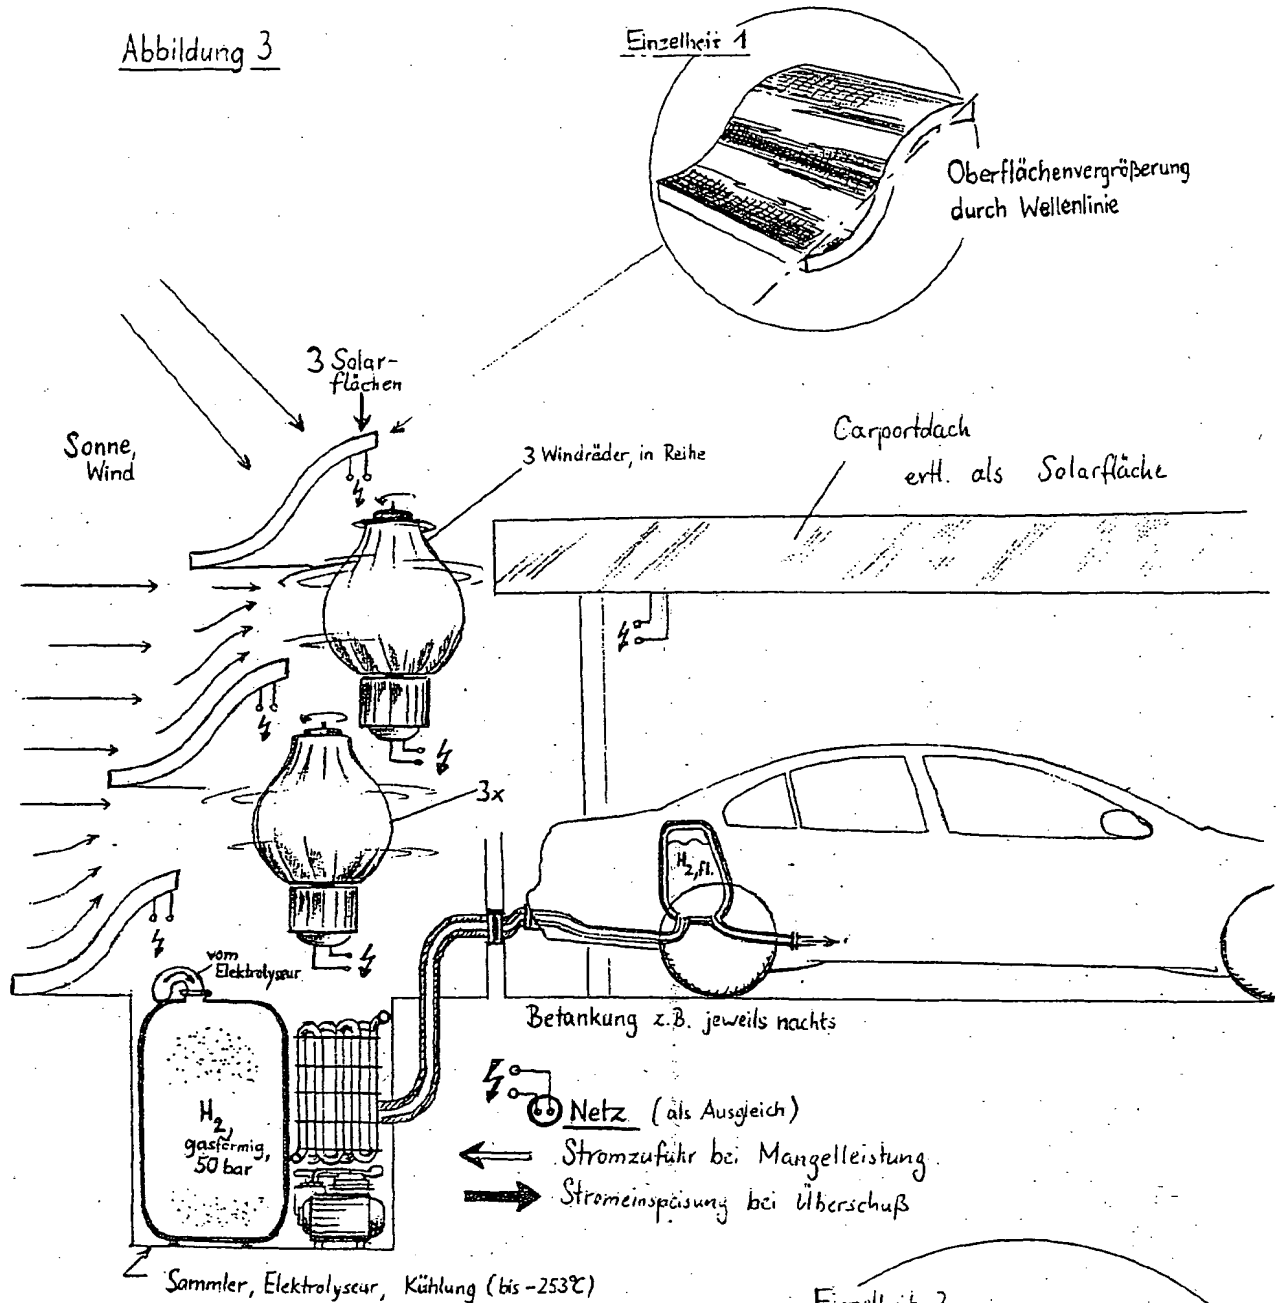 Abbildung 3
Einzelheit 1
Oberflächenvergrößerung
durch Wellenlinie
3 Solar-
flächen
Sonne,
Wind
3 Windräder, in Reihe
Carportdach
evtl. als Solarfläche
3x
H2,fl.
vom
Elektrolyseur
Betankung z.B. jeweils nachts
H2,
gasförmig,
50 bar
Netz (als Ausgleich)
Stromzufuhr bei Mangelleistung
Stromeinspeisung bei Überschuß
Sammler, Elektrolyseur, Kühlung (bis -253°C)
Einzelheit 2